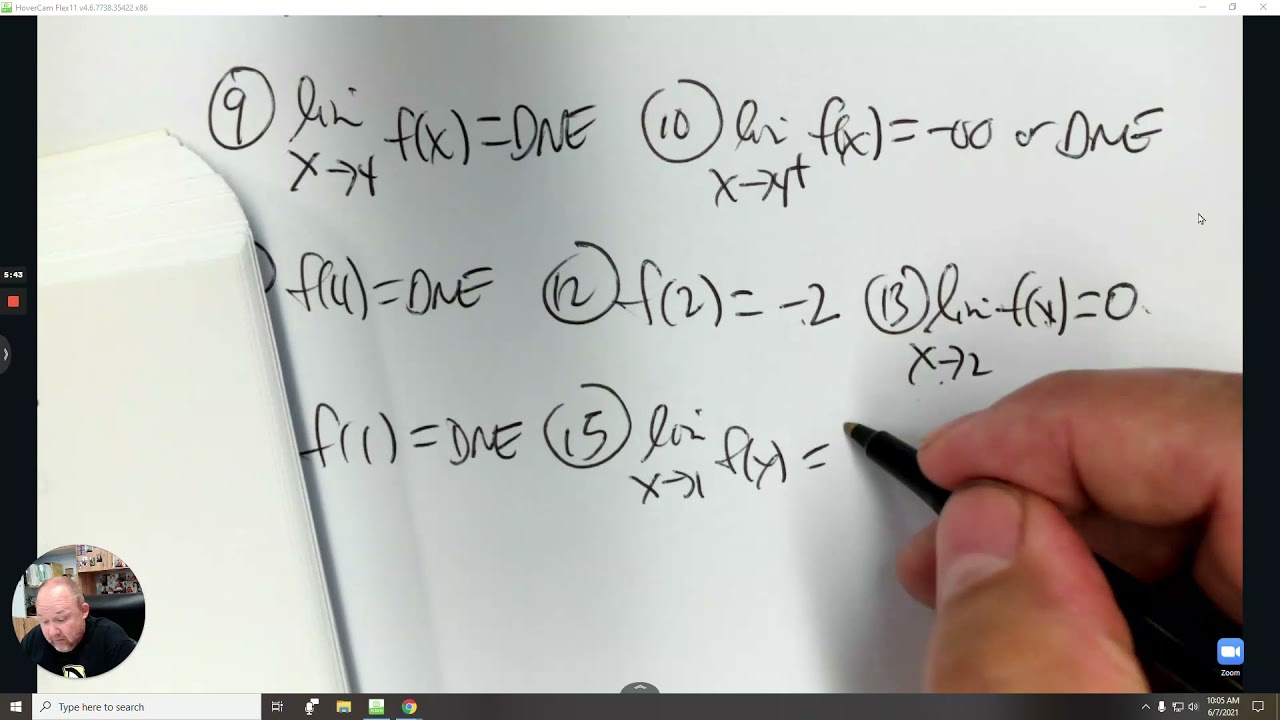 HoverCam Flex11 v4.6.7738.35422 x86
⑨ lim x→4 f(x) = DNE ⑩ lim x→4⁺ f(x) = -∞ or DNE
f(4) = DNE ⑫ f(2) = -2 ⑬ lim x→2 f(x) = 0
f(1) = DNE ⑮ lim x→1 f(x) =
5:43
Zoom
Type here to search
10:05 AM
6/7/2021